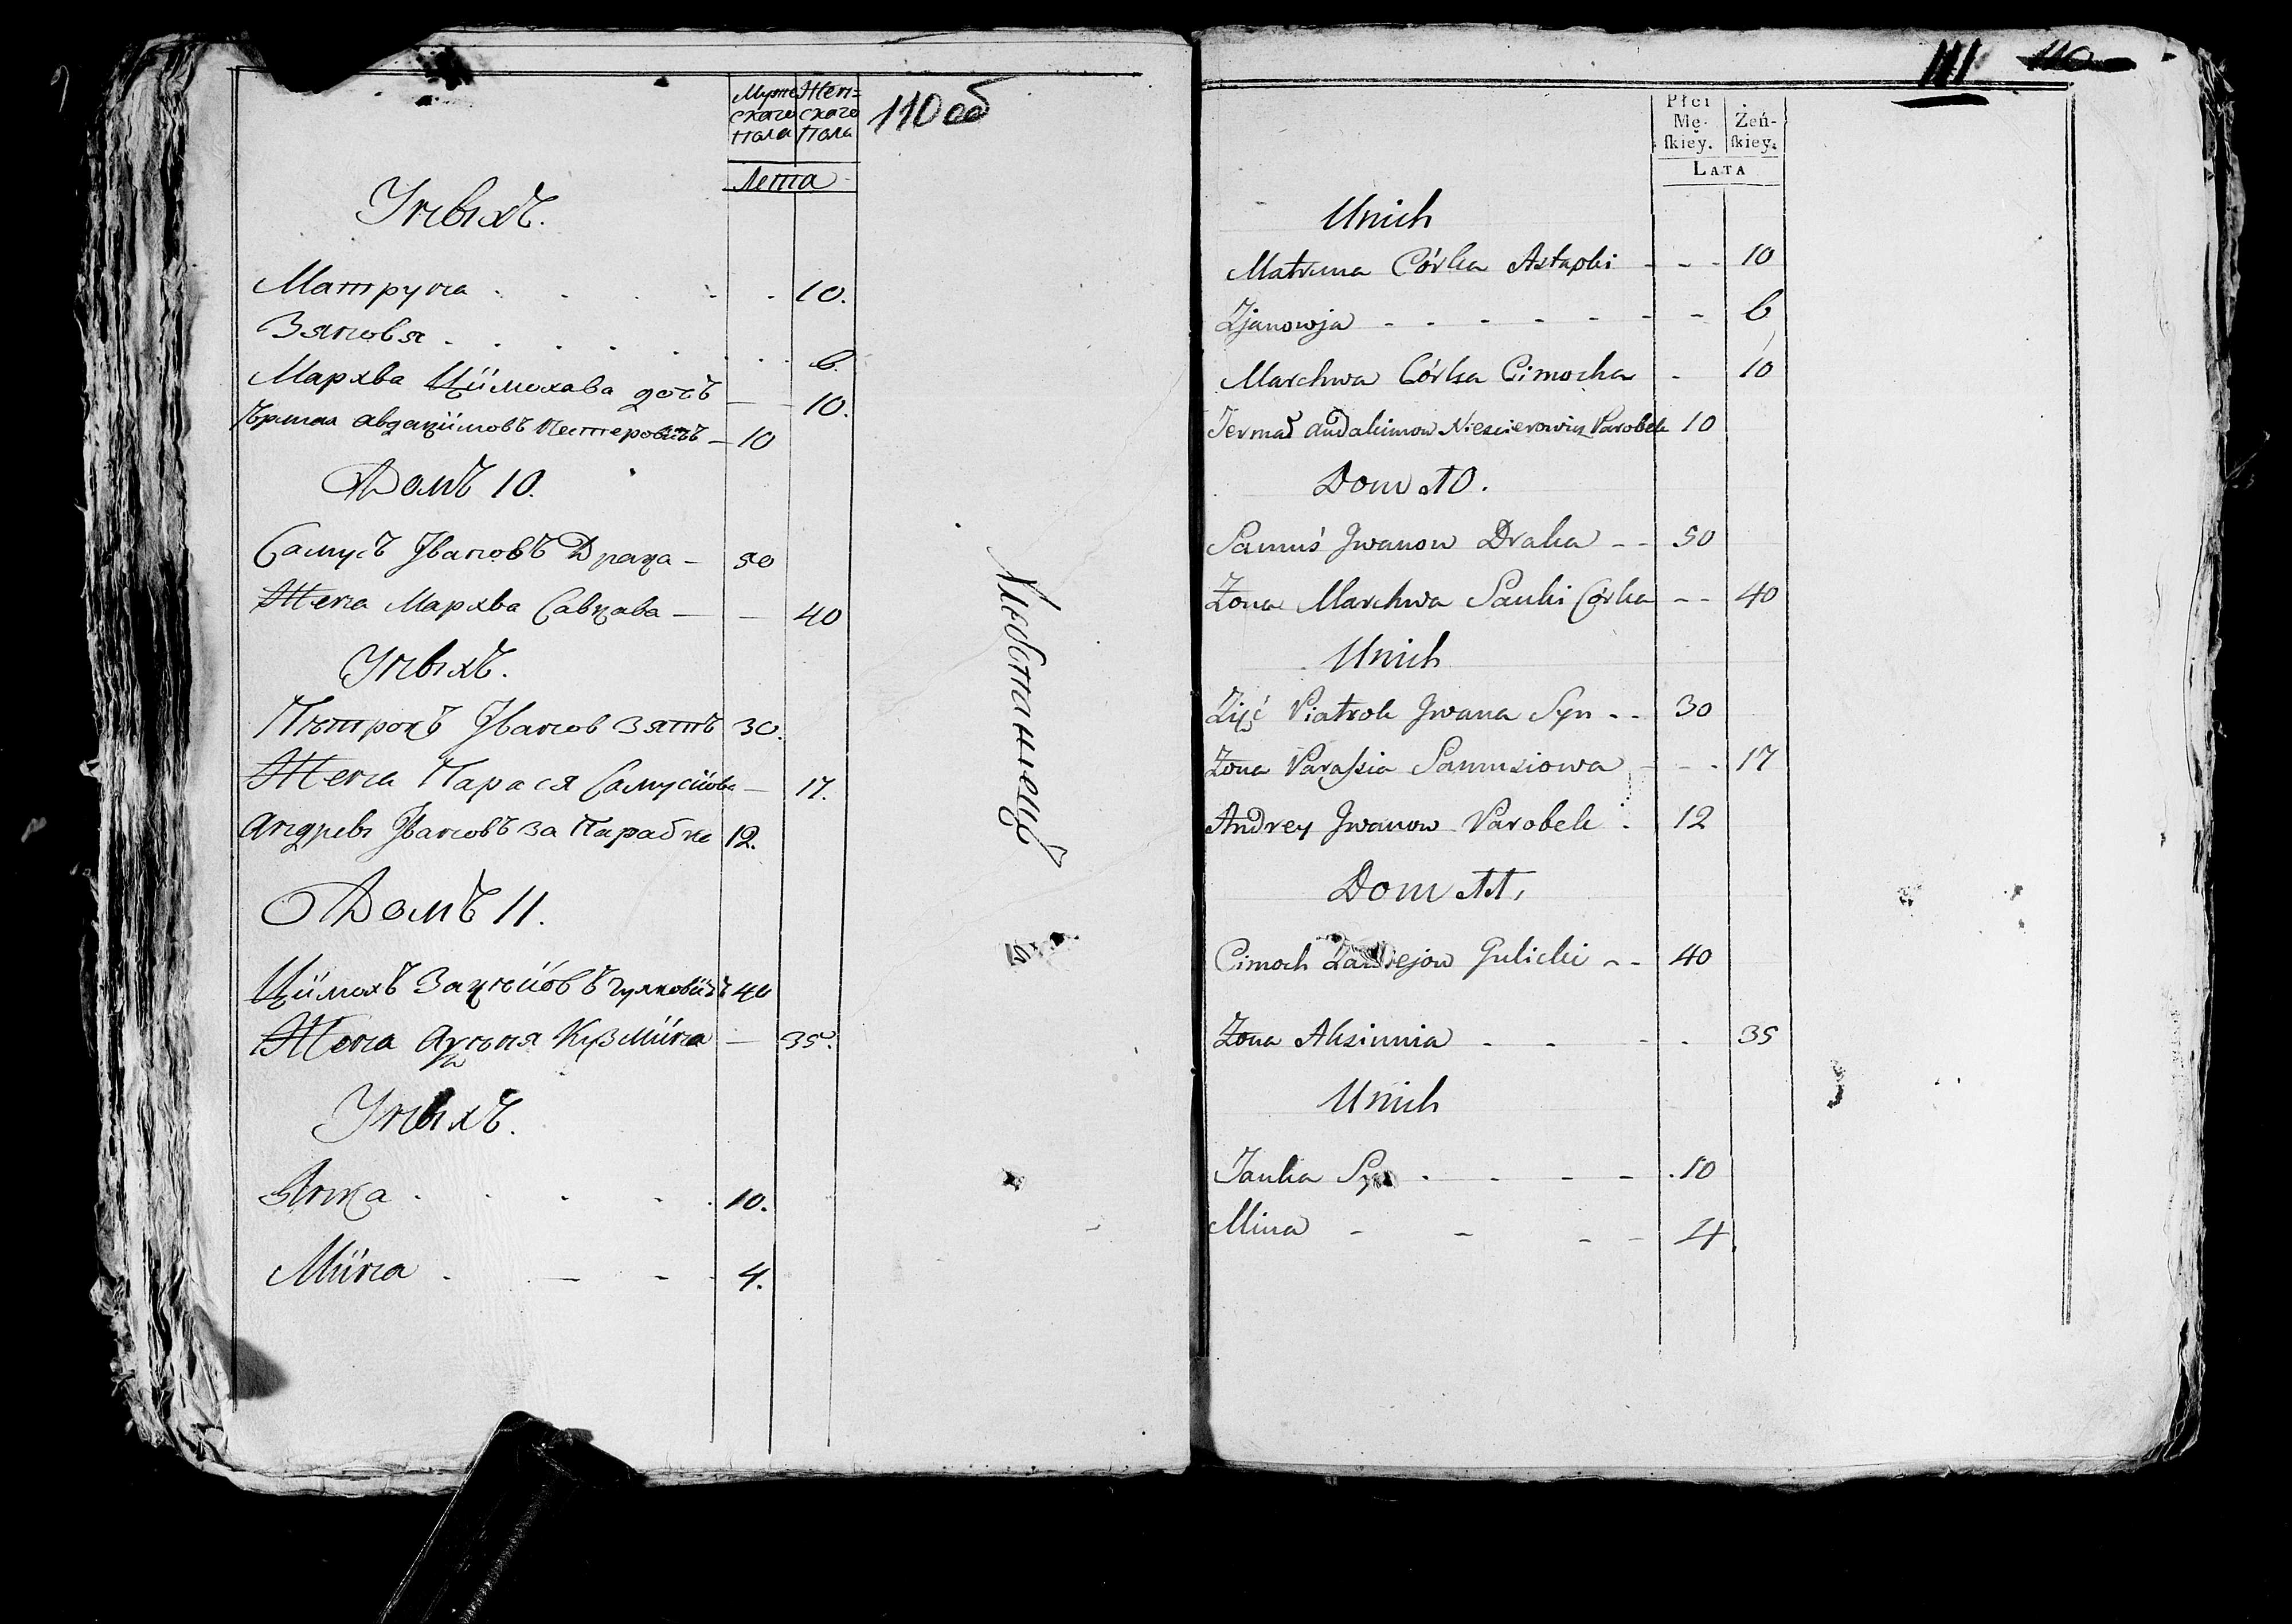 Мужескаго Пола Женскаго Пола
110 об
Лета
У ныхъ.
Матруна . . . . . 10.
Зяновя . . . . . . . 6.
Мархва Цимохава дочъ — 10.
Ярмал Авдакимовъ Нестеровичъ — 10
Домъ 10.
Самусъ Ивановъ Драка — 50
Жена Мархва Савкава — — 40
У ныхъ.
Пётрокъ Іванов Зятъ 30.
Жена Парася Самусиова — 17.
Андрей Ивановъ За Парабка 12.
Домъ 11.
Цимохъ Закгейовъ 40
Жена Кузмина — 35.
У ныхъ.
Янка . . . . 10.
Мина . — - . 4.
111 110
Płci Mę-skiey. Żeń-skiey.
LATA
U nich
Matruna Córka Astapki - - - 10
Zjanowja - - - - - - - 6
Marchwa Córka Cimocha - 10
Jermał Audakimow Niescierowicz Parobek 10
Dom 10.
Samuś Jwanow Draka - - 50
Żona Marchwa Sauki Córka - - 40
U nich
Zięć Piatrok Jwana Syn - - 30
Żona Parassia Samusiowa - - . 17
Andrey Jwanow Parobek . 12
Dom 11.
Cimoch Gulicki - - 40
Żona Aksinnia - - - . 35
U nich
Janka Syn . - - - . 10
Mina - - - - 4.